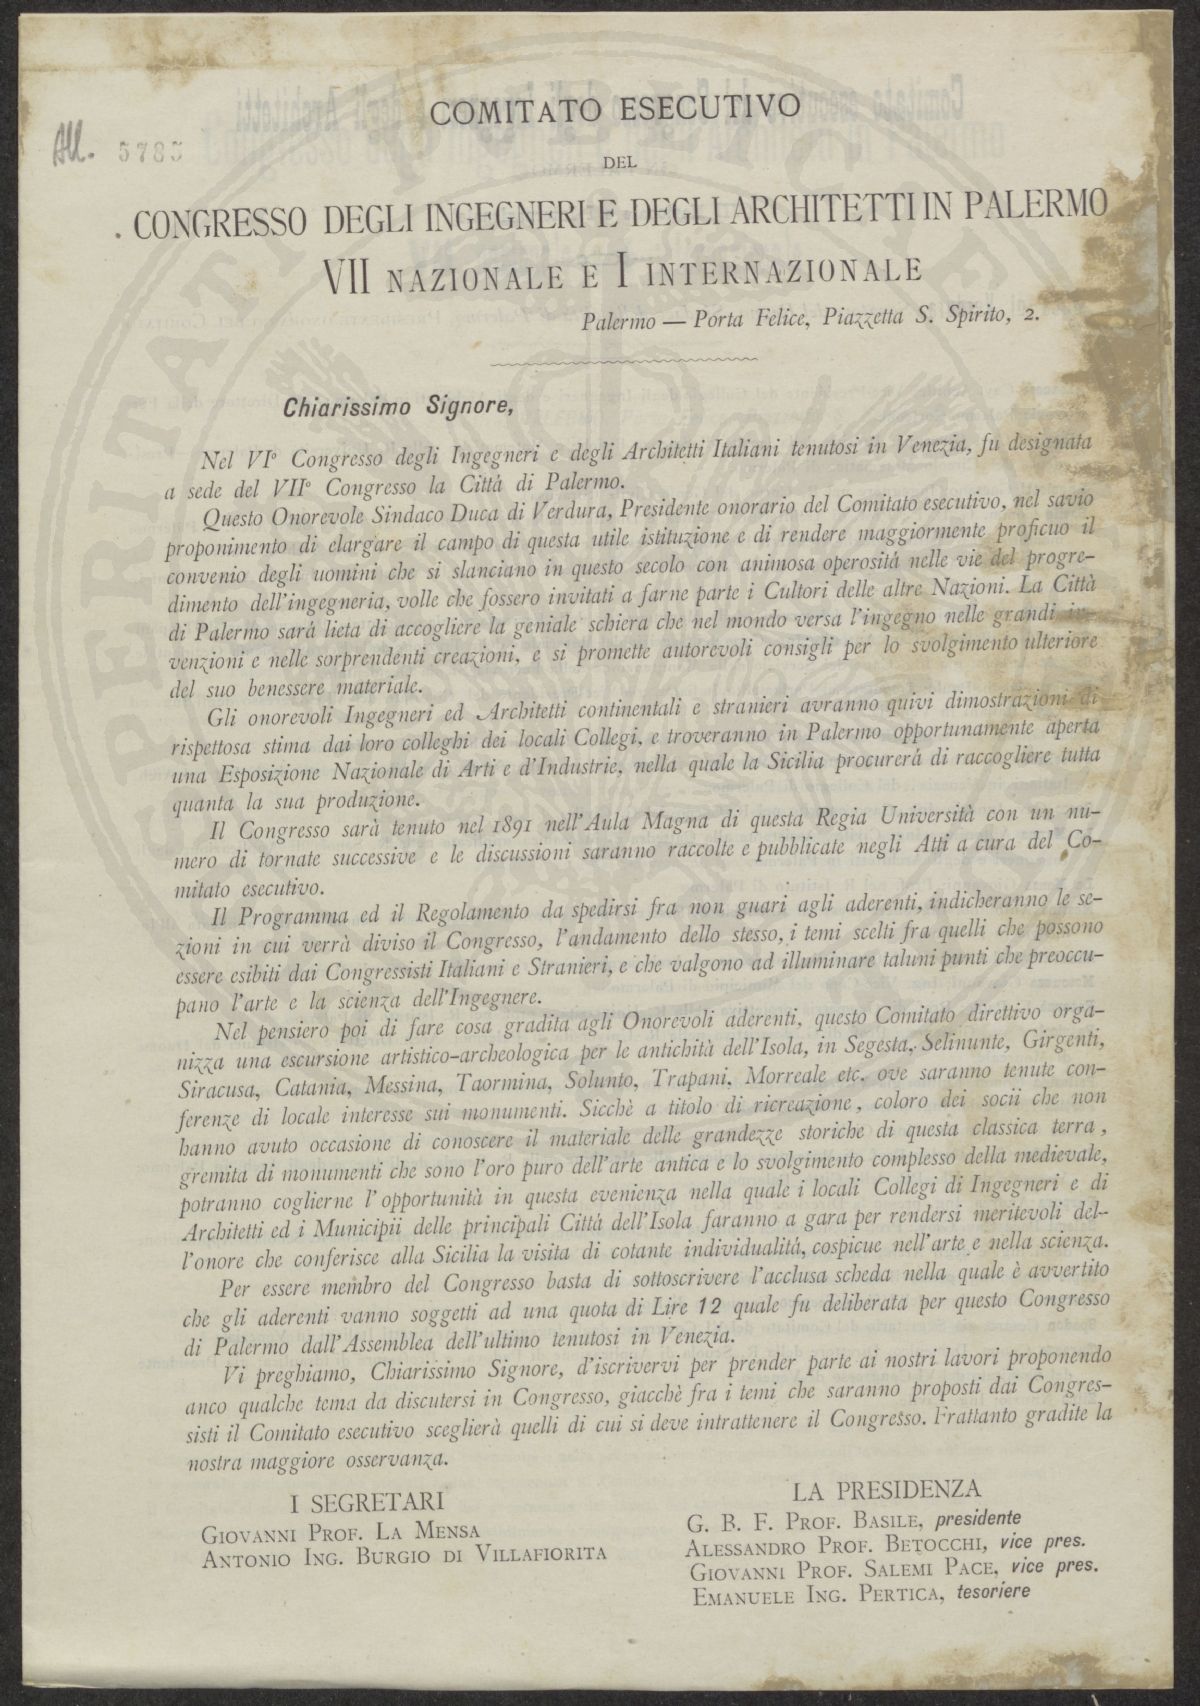 COMITATO ESECUTIVO
All. 5785
DEL
CONGRESSO DEGLI INGEGNERI E DEGLI ARCHITETTI IN PALERMO
VII NAZIONALE E I INTERNAZIONALE
Palermo — Porta Felice, Piazzetta S. Spirito, 2.
Chiarissimo Signore,
Nel VIº Congresso degli Ingegneri e degli Architetti Italiani tenutosi in Venezia, fu designata
a sede del VIIº Congresso la Città di Palermo.
Questo Onorevole Sindaco Duca di Verdura, Presidente onorario del Comitato esecutivo, nel savio
proponimento di elargare il campo di questa utile istituzione e di rendere maggiormente proficuo il
convenio degli uomini che si slanciano in questo secolo con animosa operosità nelle vie del progre-
dimento dell'ingegneria, volle che fossero invitati a farne parte i Cultori delle altre Nazioni. La Città
di Palermo sarà lieta di accogliere la geniale schiera che nel mondo versa l'ingegno nelle grandi in-
venzioni e nelle sorprendenti creazioni, e si promette autorevoli consigli per lo svolgimento ulteriore
del suo benessere materiale.
Gli onorevoli Ingegneri ed Architetti continentali e stranieri avranno quivi dimostrazioni di
rispettosa stima dai loro colleghi dei locali Collegi, e troveranno in Palermo opportunamente aperta
una Esposizione Nazionale di Arti e d'Industrie, nella quale la Sicilia procurerà di raccogliere tutta
quanta la sua produzione.
Il Congresso sarà tenuto nel 1891 nell'Aula Magna di questa Regia Università con un nu-
mero di tornate successive e le discussioni saranno raccolte e pubblicate negli Atti a cura del Co-
mitato esecutivo.
Il Programma ed il Regolamento da spedirsi fra non guari agli aderenti, indicheranno le se-
zioni in cui verrà diviso il Congresso, l'andamento dello stesso, i temi scelti fra quelli che possono
essere esibiti dai Congressisti Italiani e Stranieri, e che valgono ad illuminare taluni punti che preoccu-
pano l'arte e la scienza dell'Ingegnere.
Nel pensiero poi di fare cosa gradita agli Onorevoli aderenti, questo Comitato direttivo orga-
nizza una escursione artistico-archeologica per le antichità dell'Isola, in Segesta, Selinunte, Girgenti,
Siracusa, Catania, Messina, Taormina, Solunto, Trapani, Morreale etc. ove saranno tenute con-
ferenze di locale interesse sui monumenti. Sicchè a titolo di ricreazione, coloro dei socii che non
hanno avuto occasione di conoscere il materiale delle grandezze storiche di questa classica terra,
gremita di monumenti che sono l'oro puro dell'arte antica e lo svolgimento complesso della medievale,
potranno coglierne l'opportunità in questa evenienza nella quale i locali Collegi di Ingegneri e di
Architetti ed i Municipii delle principali Città dell'Isola faranno a gara per rendersi meritevoli del-
l'onore che conferisce alla Sicilia la visita di cotante individualità, cospicue nell'arte e nella scienza.
Per essere membro del Congresso basta di sottoscrivere l'acclusa scheda nella quale è avvertito
che gli aderenti vanno soggetti ad una quota di Lire 12 quale fu deliberata per questo Congresso
di Palermo dall'Assemblea dell'ultimo tenutosi in Venezia.
Vi preghiamo, Chiarissimo Signore, d'iscrivervi per prender parte ai nostri lavori proponendo
anco qualche tema da discutersi in Congresso, giacchè fra i temi che saranno proposti dai Congres-
sisti il Comitato esecutivo sceglierà quelli di cui si deve intrattenere il Congresso. Frattanto gradite la
nostra maggiore osservanza.
I SEGRETARI
GIOVANNI PROF. LA MENSA
ANTONIO ING. BURGIO DI VILLAFIORITA
LA PRESIDENZA
G. B. F. PROF. BASILE, presidente
ALESSANDRO PROF. BETOCCHI, vice pres.
GIOVANNI PROF. SALEMI PACE, vice pres.
EMANUELE ING. PERTICA, tesoriere